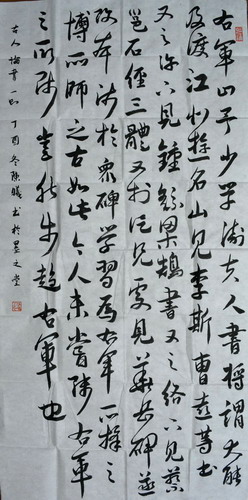 右軍曰予少學衛夫人書將謂大能
及渡江北遊名山見李斯曹喜等書
又之許下見鍾繇梁鵠書又之洛下見蔡
邕石經三體又於從兄處見華岳碑遂
改本師於衆碑學習焉右軍所採之
博所師之古如此今人未嘗師右軍
之所師豈能步趨右軍也
古人論書一則丁酉冬陳曦書於墨文堂